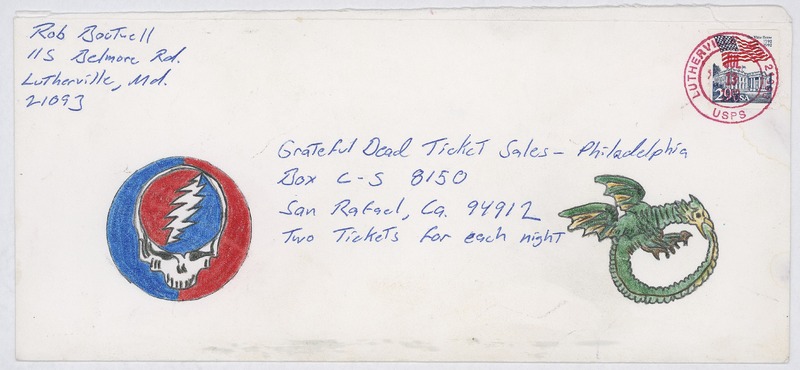 Rob Boutwell
115 Belmore Rd.
Lutherville, Md.
21093
Grateful Dead Ticket Sales - Philadelphia
Box C-S 8150
San Rafael, Ca. 94912
Two Tickets for each night
29 USA
LUTHERVILLE
USPS